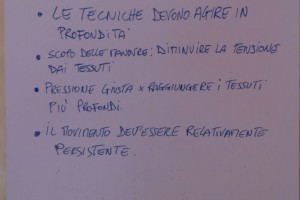 • LE TECNICHE DEVONO AGIRE IN
PROFONDITA'
• SCOPO DELLE MANOVRE: DIMINUIRE LA TENSIONE
DAI TESSUTI
• PRESSIONE GIUSTA x RAGGIUNGERE I TESSUTI
PIÙ PROFONDI.
• IL MOVIMENTO DEV'ESSERE RELATIVAMENTE
PERSISTENTE.